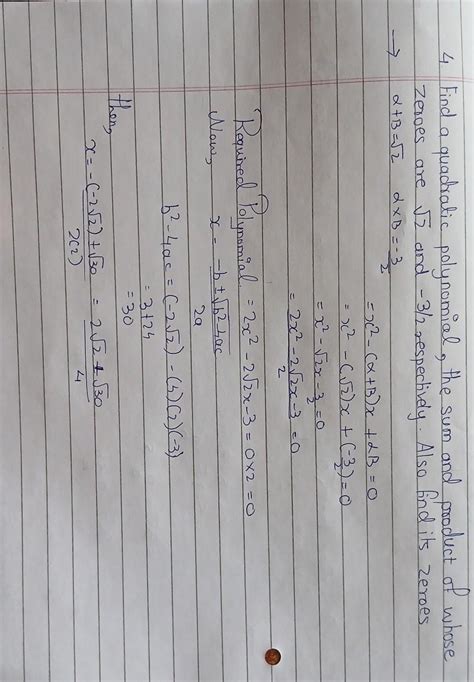 4. Find a quadratic polynomial, the sum and product of whose
zeroes are √2 and -3/2 respectively. Also find its zeroes
→ α+B=√2 α×B=-3/2
=x²-(α+B)x+αB=0
=x²-(√2)x+(-3/2)=0
=x²-√2x-3/2=0
=2x²-2√2x-3/2=0
Required Polynomial = 2x²-2√2x-3=0×2=0
Now, x= -b±√b²-4ac/2a
b²-4ac=(-2√2)-(4)(2)(-3)
=3+24
=30
then,
x=-(-2√2)±√30/2(2) = 2√2±√30/4